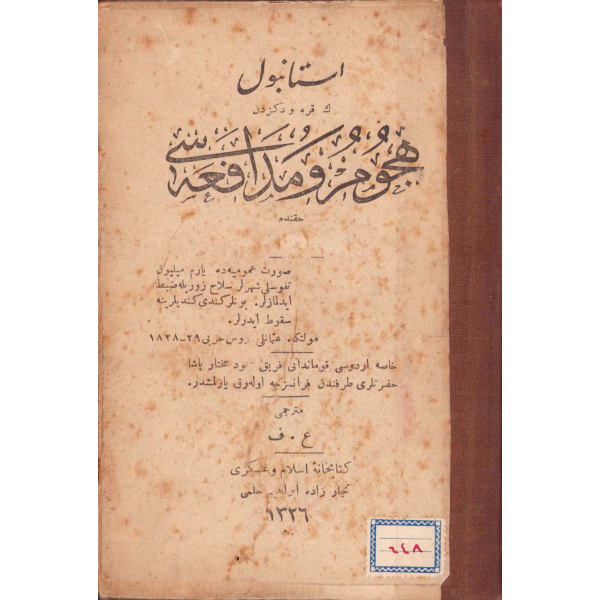 استانبول
ك قره و دكزدن
هجوم و مدافعه سی
حقنده
صورت عمومیه ده یارم میلیون
نفوسلی شهرلر سلاح زوریله ضبط
ایدلمازلر. بونلر كندی كندیلرینه
سقوط ایدرلر.
مولتكه. عثمانلی روس حربی ٢٩-١٨٢٨
خاصه اردوسی قوماندانی فریق مختار پاشا
حضرتلری طرفندن فرانسزجه اوله رق یازلمشدر.
مترجمی
ع . ف
كتابخانهٔ اسلام و عسكری
تجار زاده ابراهیم حلمی
١٣٢٦
٦٤٨